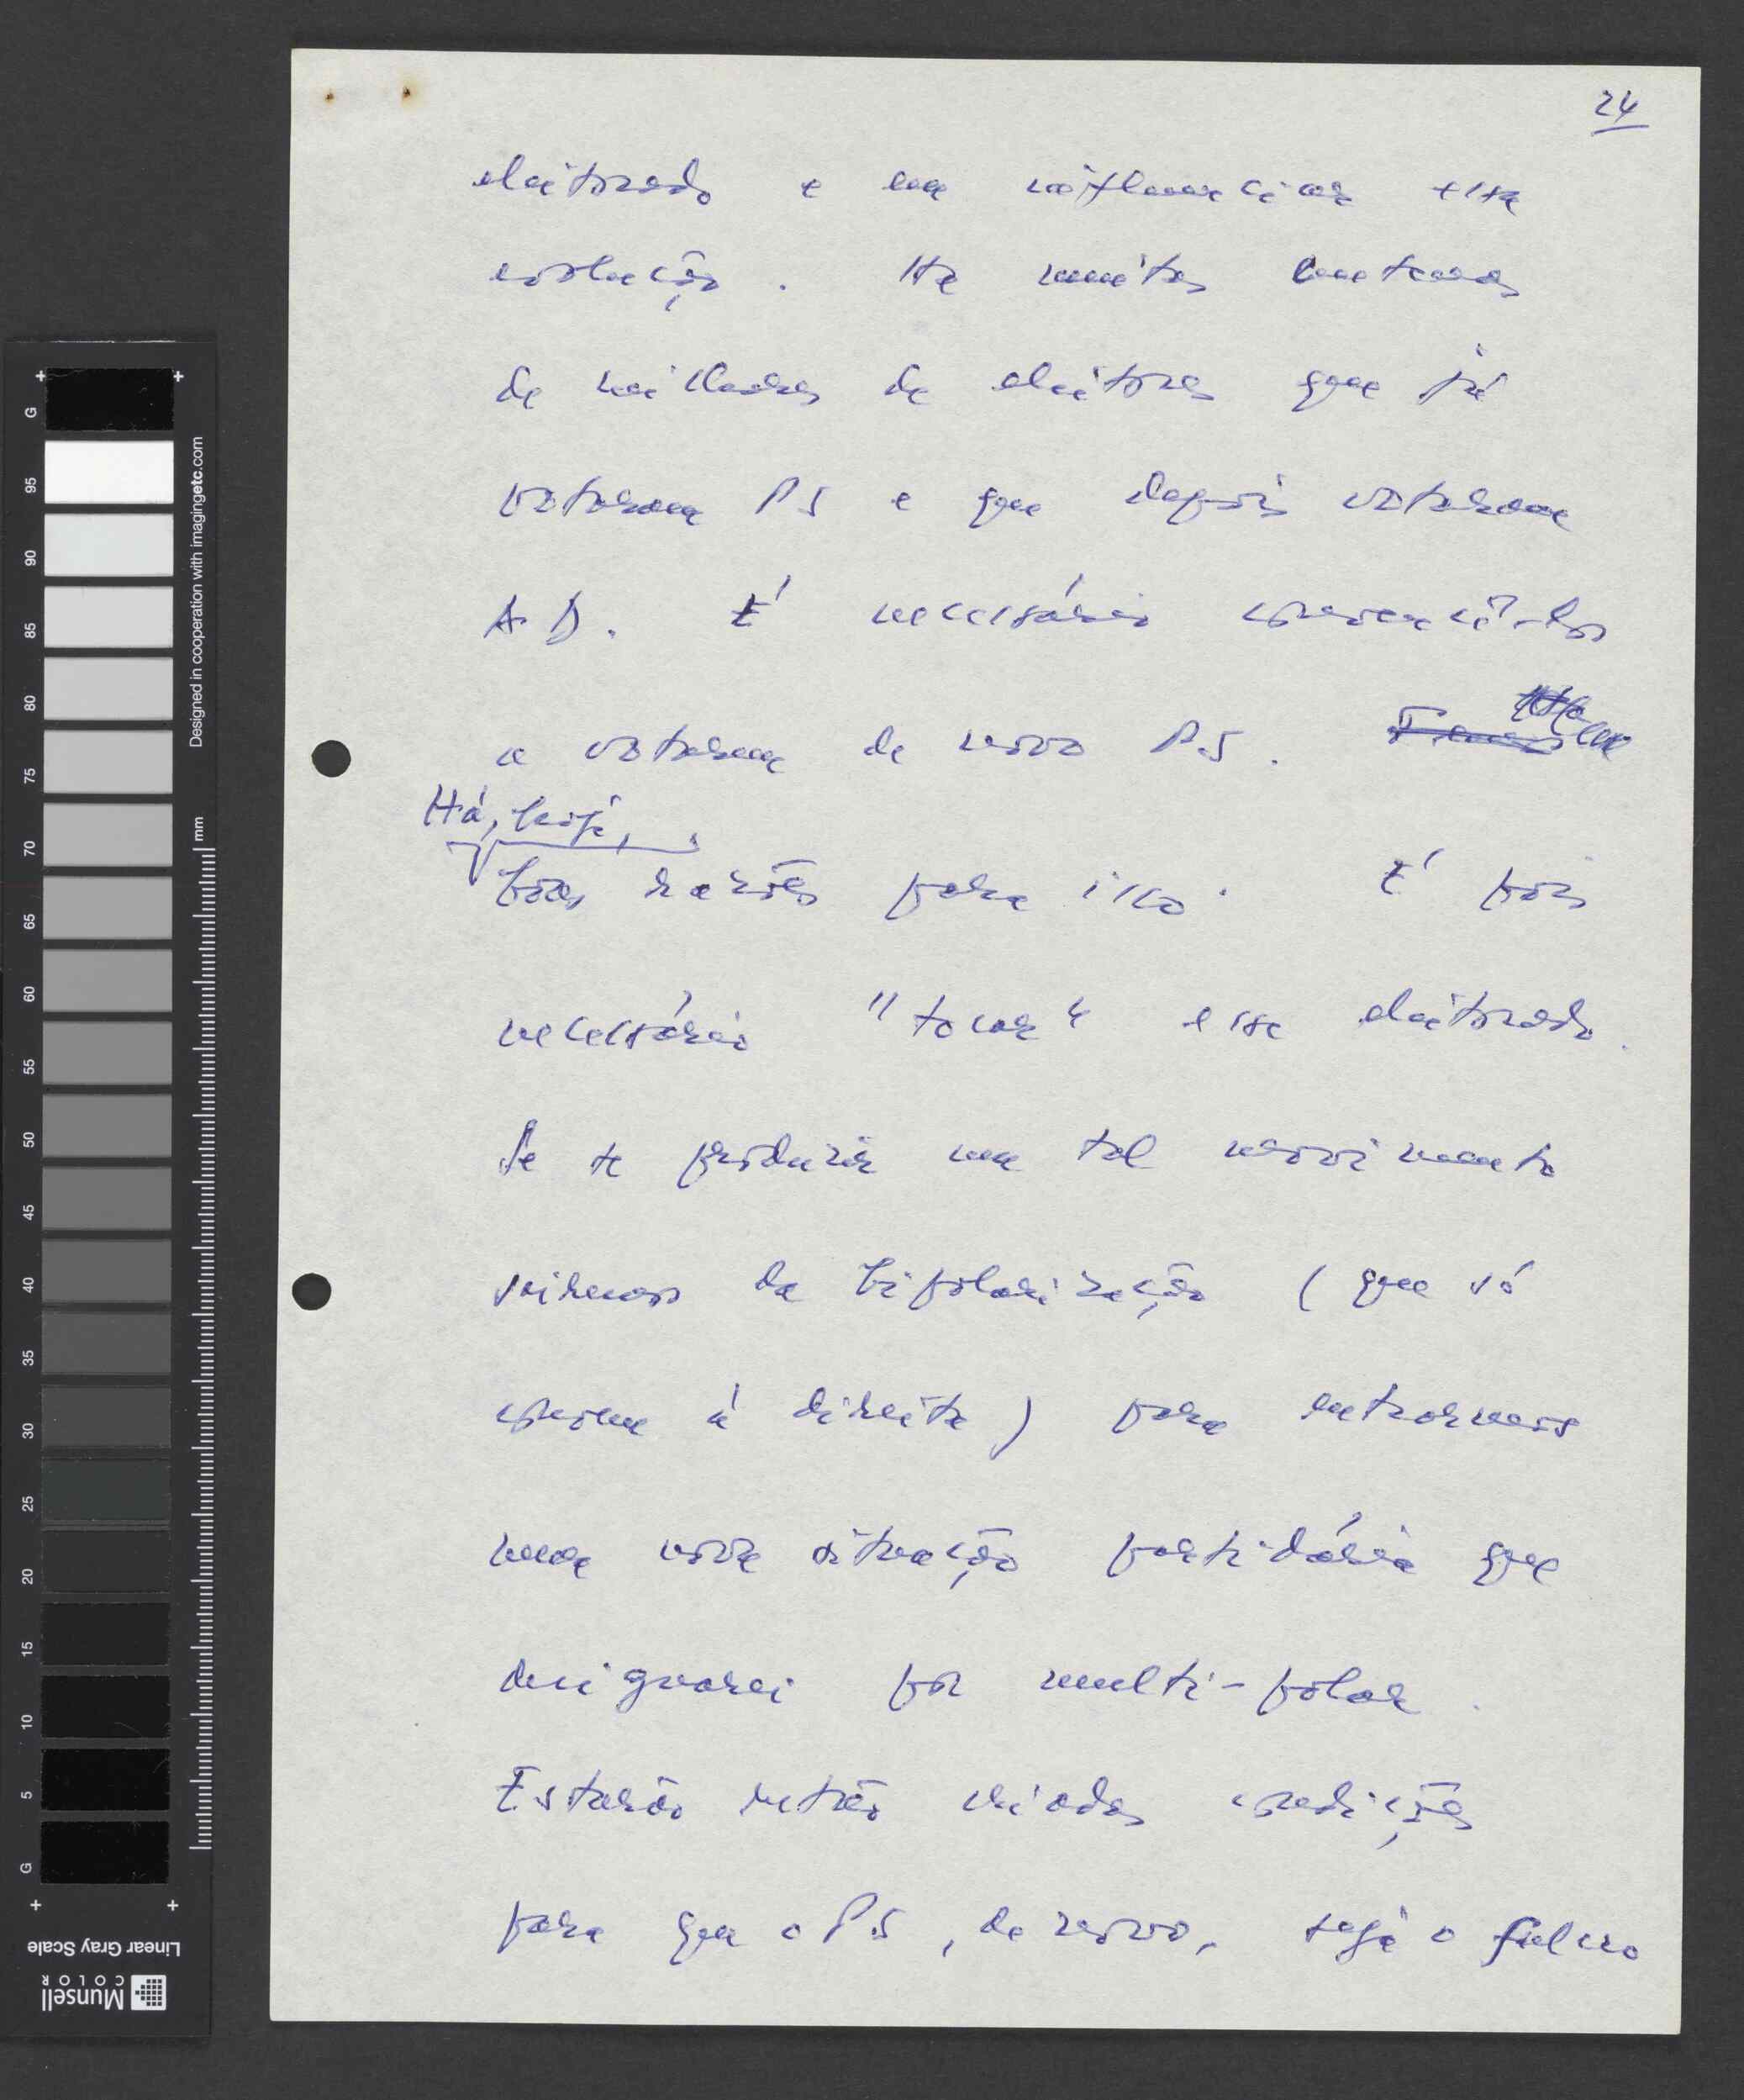 24
eleitorado e em influenciar essa
evolução. Há muitas centenas
de milhares de eleitores que já
votaram PS e que depois votaram
A.D. É necessário convencê-los
a votarem de novo PS.
Há, hoje,
boas razões para isso. É pois
necessário "tocar" esse eleitorado.
Se se produzir um tal movimento
sairemos da bipolarização (que só
convem à direita) para entrarmos
numa nova situação partidária que
designarei por multi-polar.
Estarão então criadas condições
para que o PS, de novo, seja o fulcro
G 95 90 85 80 75 70 65 60 55 50 45 40 35 30 25 20 15 10 5 G
Designed in cooperation with imagingetc.com
mm
Linear Gray Scale
Munsell
COLOR